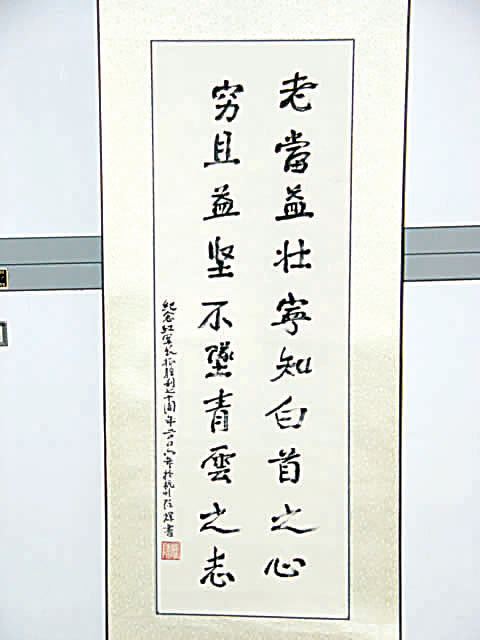 老當益壮寧知白首之心
穷且益坚不墜青雲之志
纪念红军长征胜利七十周年